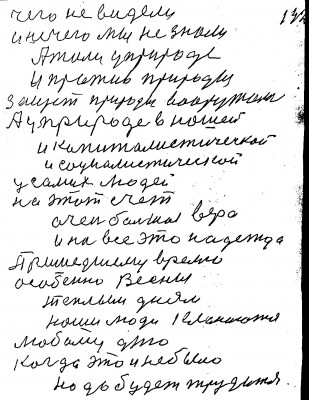 132
чего не видели
и нечего мы не знали
А жили у природе
И против природы
защет природы вооружалис
А у природе в нашей
и капиталистической
и социалистической
у самих людей
на этот счет
очен болшая вера
и на все это надежда
Пришедшему времю
особенно весны
теплым дням
наши люди кланяются
любому это
Когда это и небыло
надь будет трудится.